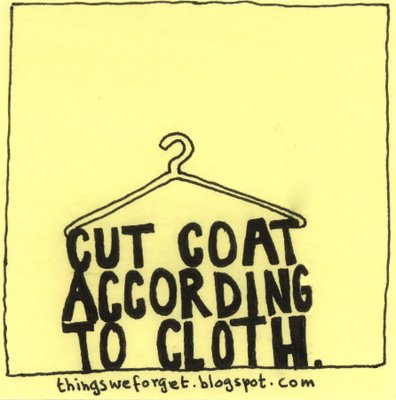 CUT COAT
ACCORDING
TO CLOTH.
thingsweforget.blogspot.com